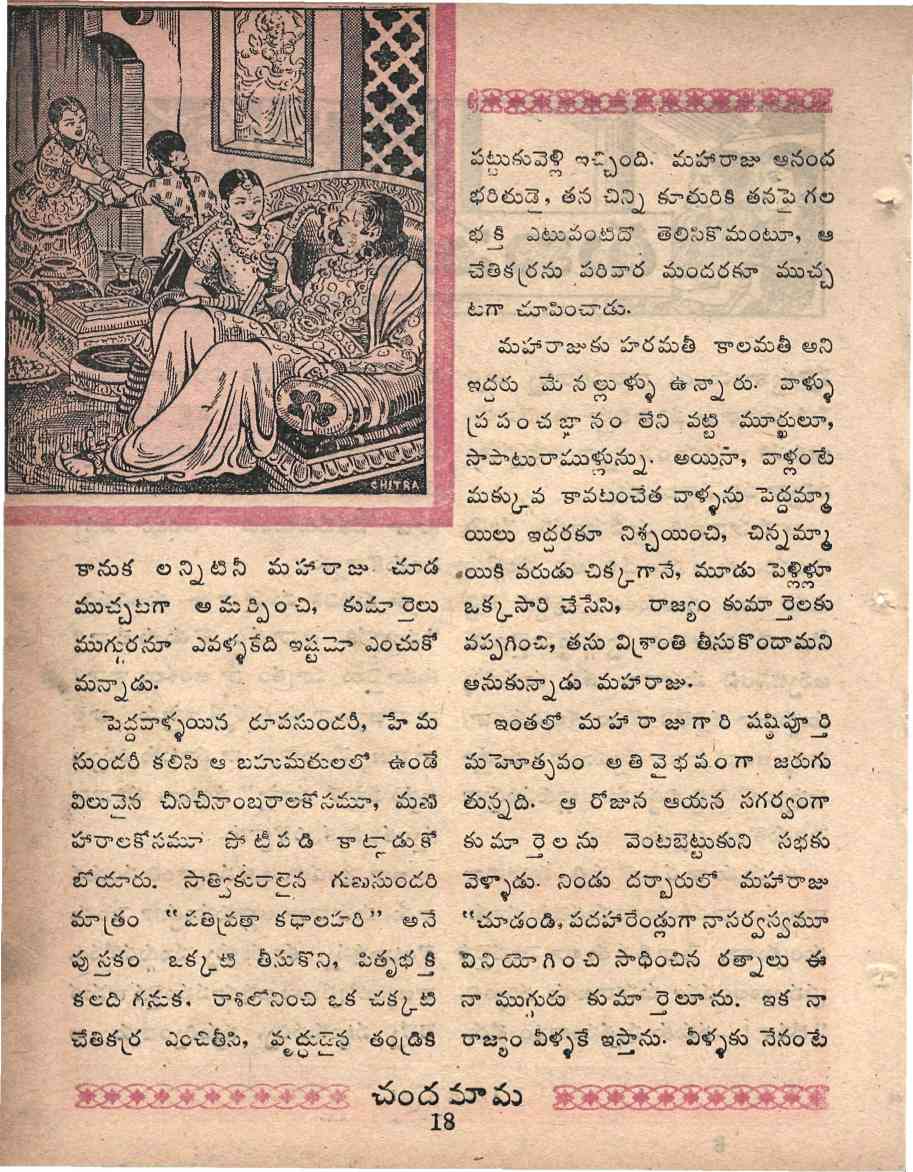 CHITRA
కానుక లన్నిటినీ మహారాజు చూడ
ముచ్చటగా అమర్పించి, కుమార్తెలు
ముగ్గురనూ ఎవళ్ళకేది ఇష్టమో ఎంచుకో
మన్నాడు.
పెద్దవాళ్ళయిన రూపసుందరీ, హేమ
సుందరీ కలిసి ఆ బహుమతులలో ఉండే
విలువైన చీనిచీనాంబరాలకోసమూ, మణి
హారాలకోసమూ పోటీపడి కాట్లాడుకో
బోయారు. సాత్వికురాలైన గుణసుందరి
మాత్రం “పతివ్రతా కథాలహరి” అనే
పుస్తకం ఒక్కటి తీసుకొని, పితృభక్తి
కలది గనుక, రాశిలోనించి ఒక చక్కటి
చేతికర్ర ఎంచితీసి, వృద్ధుడైన తండ్రికి
పట్టుకువెళ్లి ఇచ్చింది. మహారాజు ఆనంద
భరితుడై, తన చిన్ని కూతురికి తనపై గల
భక్తి ఎటువంటిదో తెలిసికొమంటూ, ఆ
చేతికర్రను పరివార మందరకూ ముచ్చ
టగా చూపించాడు.
మహారాజుకు హరమతీ కాలమతీ అని
ఇద్దరు మేనల్లుళ్ళు ఉన్నారు. వాళ్ళు
ప్రపంచజ్ఞానం లేని వట్టి మూర్ఖులూ,
సాపాటురాముళ్లున్ను. అయినా, వాళ్లంటే
మక్కువ కావటంచేత వాళ్ళను పెద్దమ్మా
యిలు ఇద్దరకూ నిశ్చయించి, చిన్నమ్మా
యికి వరుడు చిక్కగానే, మూడు పెళ్లిళ్లూ
ఒక్కసారి చేసేసి, రాజ్యం కుమార్తెలకు
వప్పగించి, తను విశ్రాంతి తీసుకొందామని
అనుకున్నాడు మహారాజు.
ఇంతలో మహారాజుగారి షష్ఠిపూర్తి
మహెూత్సవం అతివైభవంగా జరుగు
తున్నది. ఆ రోజున ఆయన సగర్వంగా
కుమార్తెలను వెంటబెట్టుకుని సభకు
వెళ్ళాడు. నిండు దర్బారులో మహారాజు
“చూడండి, పదహారేండ్లుగా నాసర్వస్వమూ
వినియోగించి సాధించిన రత్నాలు ఈ
నా ముగ్గురు కుమార్తెలూను. ఇక నా
రాజ్యం వీళ్ళకే ఇస్తాను. వీళ్ళకు నేనంటే
చందమామ
18